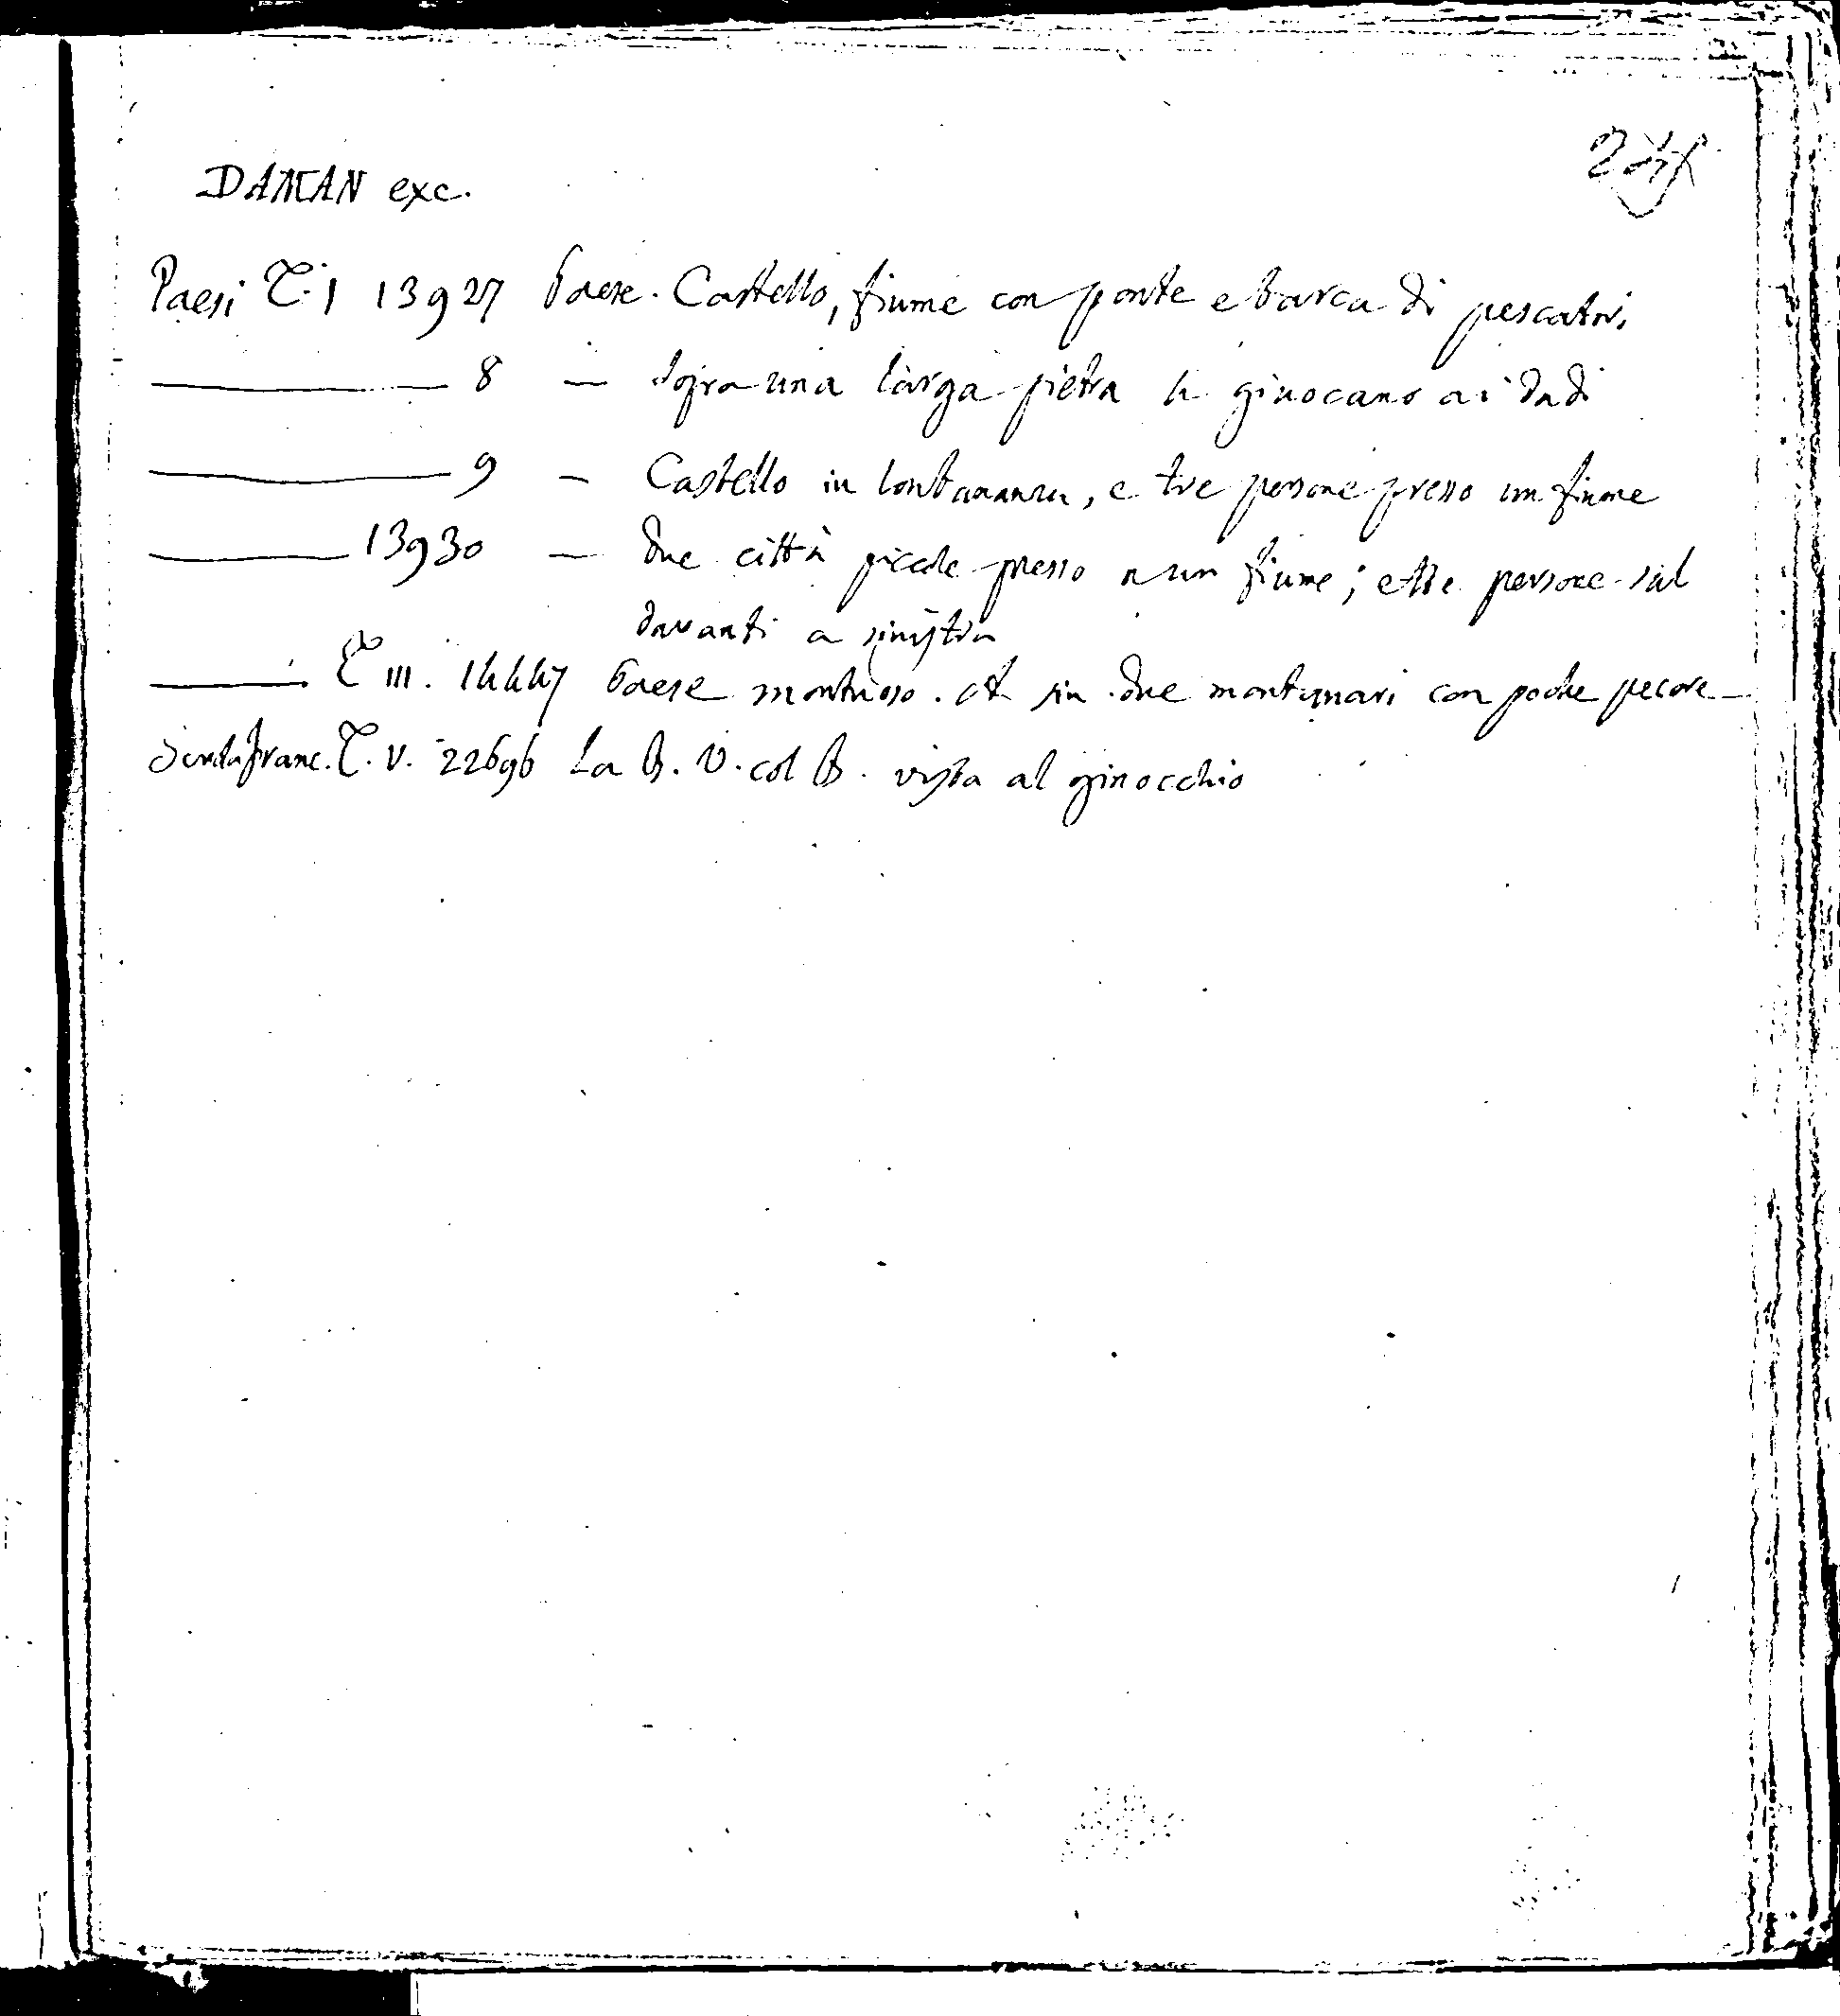 DAMAN exc.
Paesi T. I 13927 Paese. Castello, fiume con ponte e barca di pescatori
8 — Sopra una larga pietra si giuocano ai dadi
9 — Castello in lontananza, e tre persone presso un fiume
13930 — Due città piccole presso a un fiume; e tre persone sul
davanti a sinistra
T III. 14447 Paese montuoso. A sin. due montanari con poche pecore
Scuola franc. T. V. 22696 La B. V. col B. vista al ginocchio